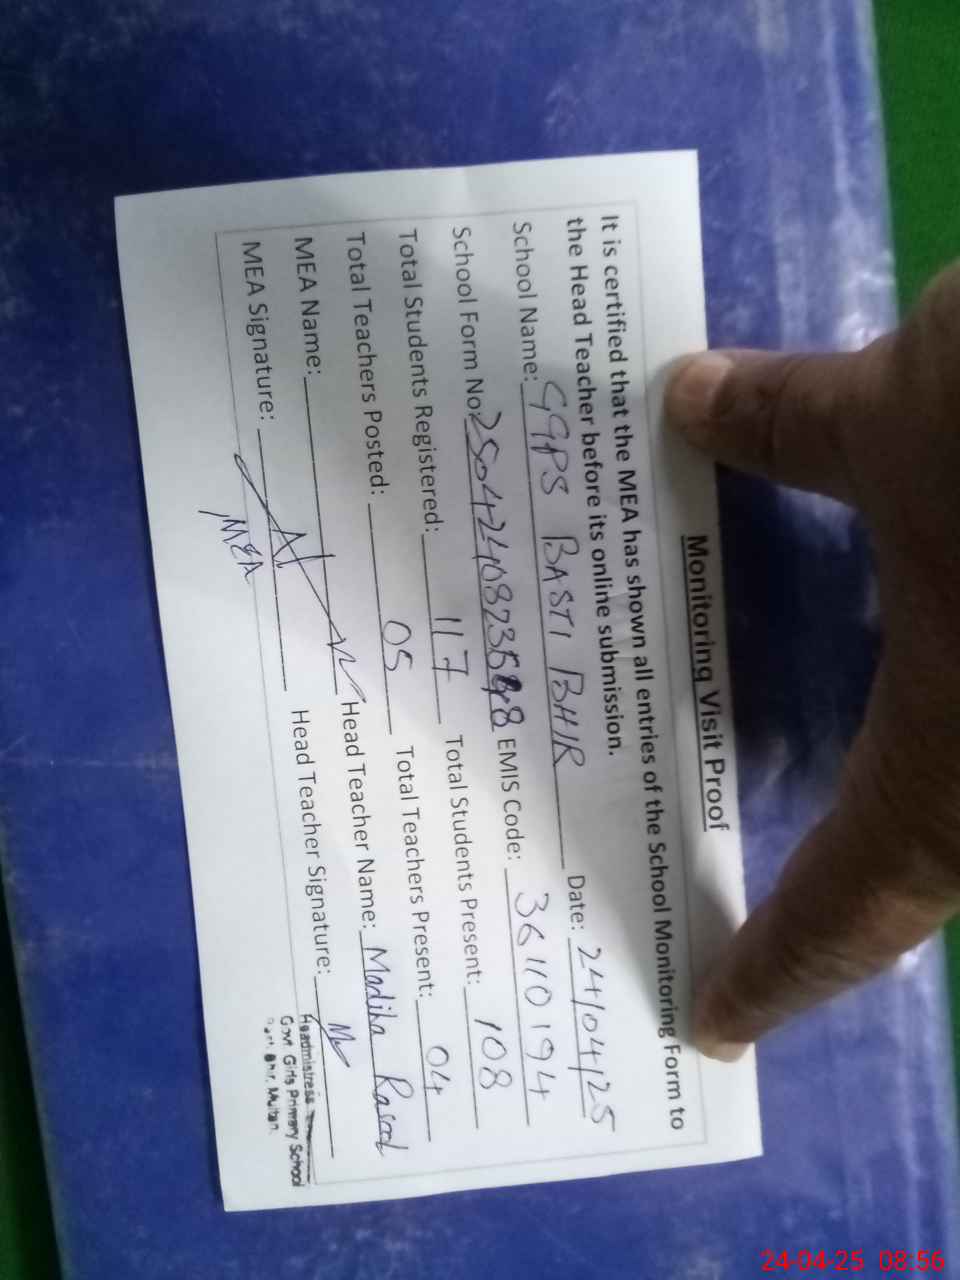 Monitoring Visit Proof
It is certified that the MEA has shown all entries of the School Monitoring Form to
the Head Teacher before its online submission.
School Name: GGPS BASTI BHIR Date: 24/04/25
School Form No: EMIS Code: 36110194
Total Students Registered: 117 Total Students Present: 108
Total Teachers Posted: 05 Total Teachers Present: 04
MEA Name: Head Teacher Name: Madiha Rasool
MEA Signature: Head Teacher Signature:
MEA
Headmistress
Govt. Girls Primary School
Bhir, Multan.
24-04-25 08:56